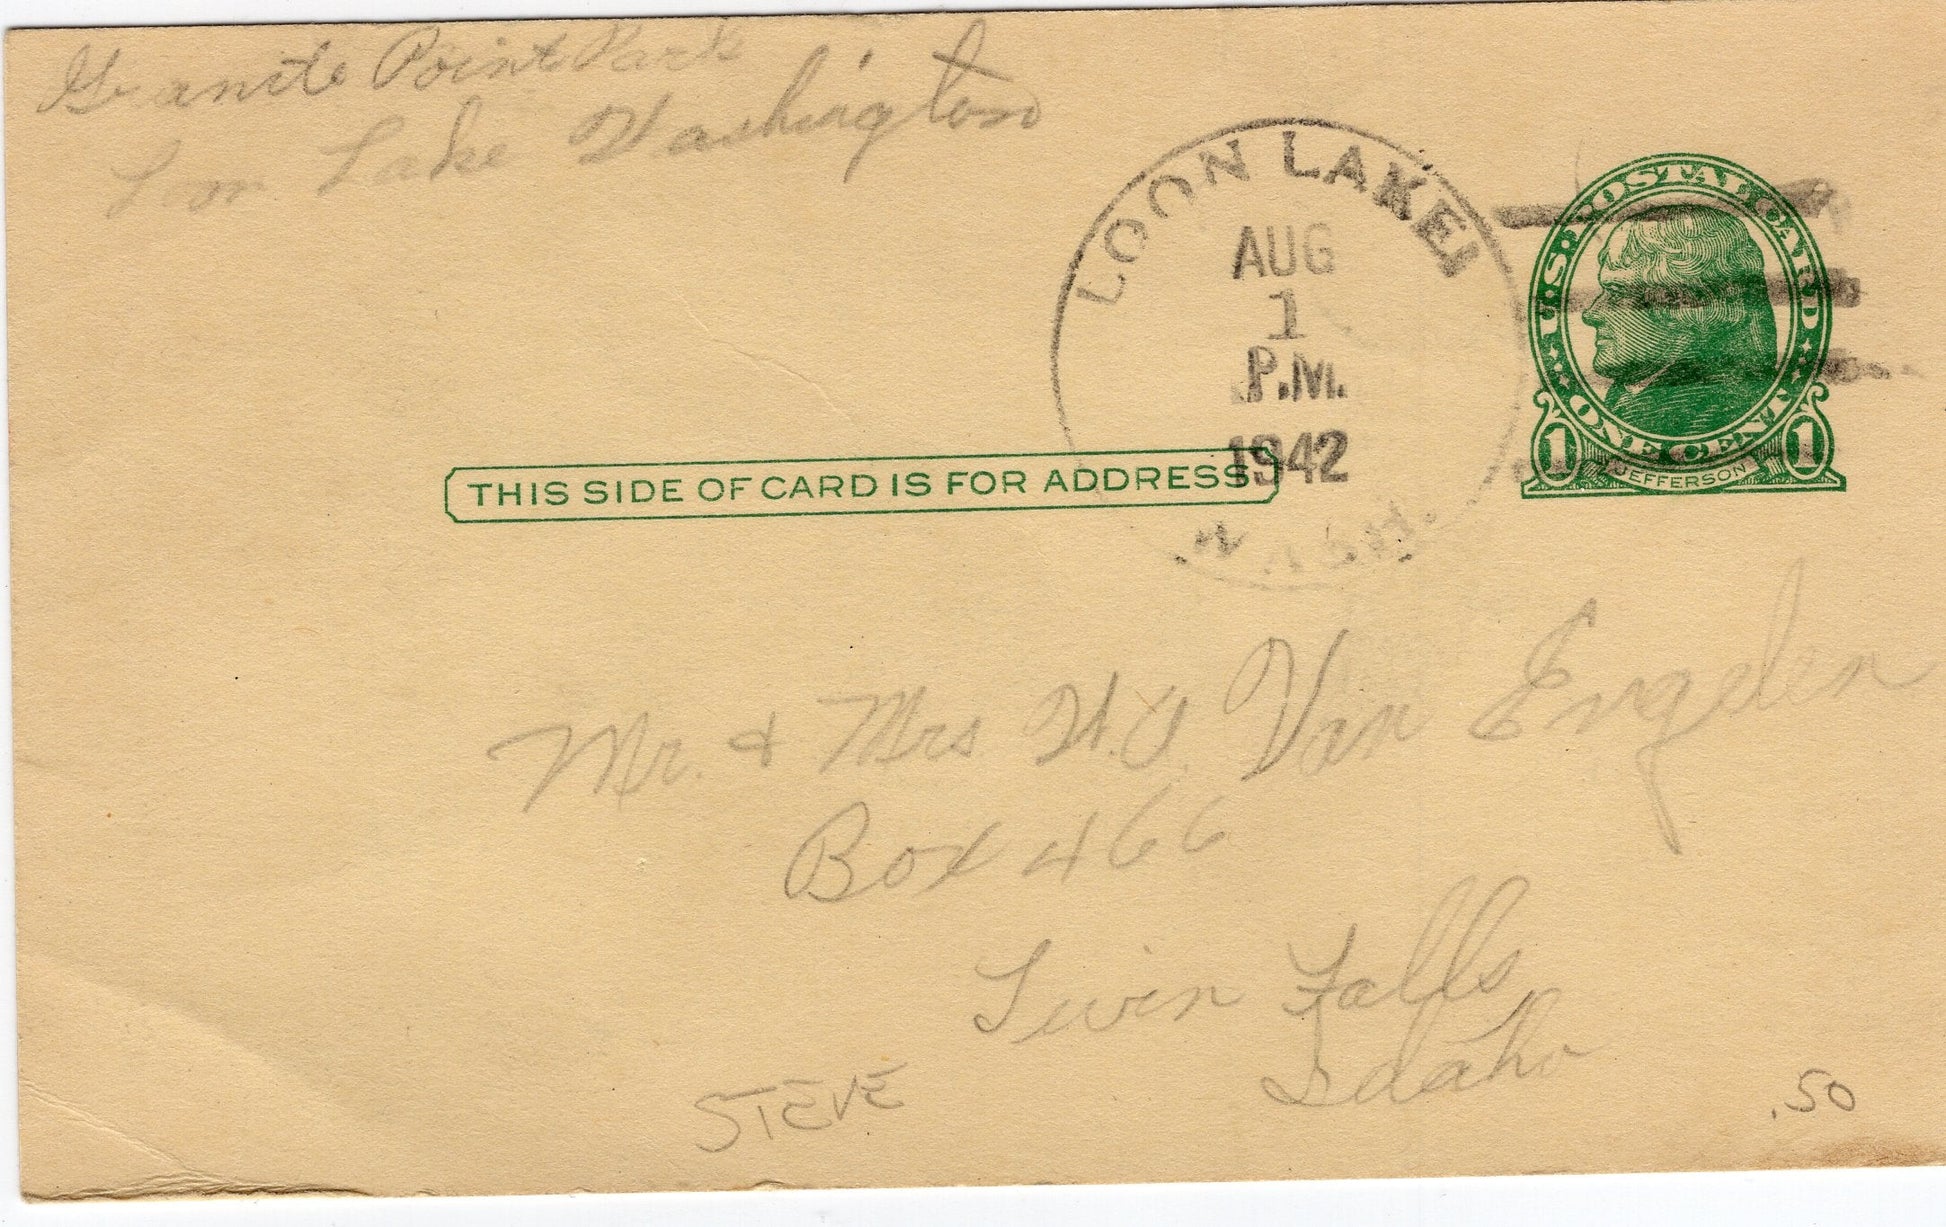 Granite Point Park
Loon Lake Washington
LOON LAKE
AUG
1
P.M.
1942
WASH.
U·S·POSTAL CARD
ONE CENT
1 JEFFERSON 1
THIS SIDE OF CARD IS FOR ADDRESS
Mr. & Mrs H.O. Van Engelen
Box 466
Twin Falls
Idaho
STEVE
.50